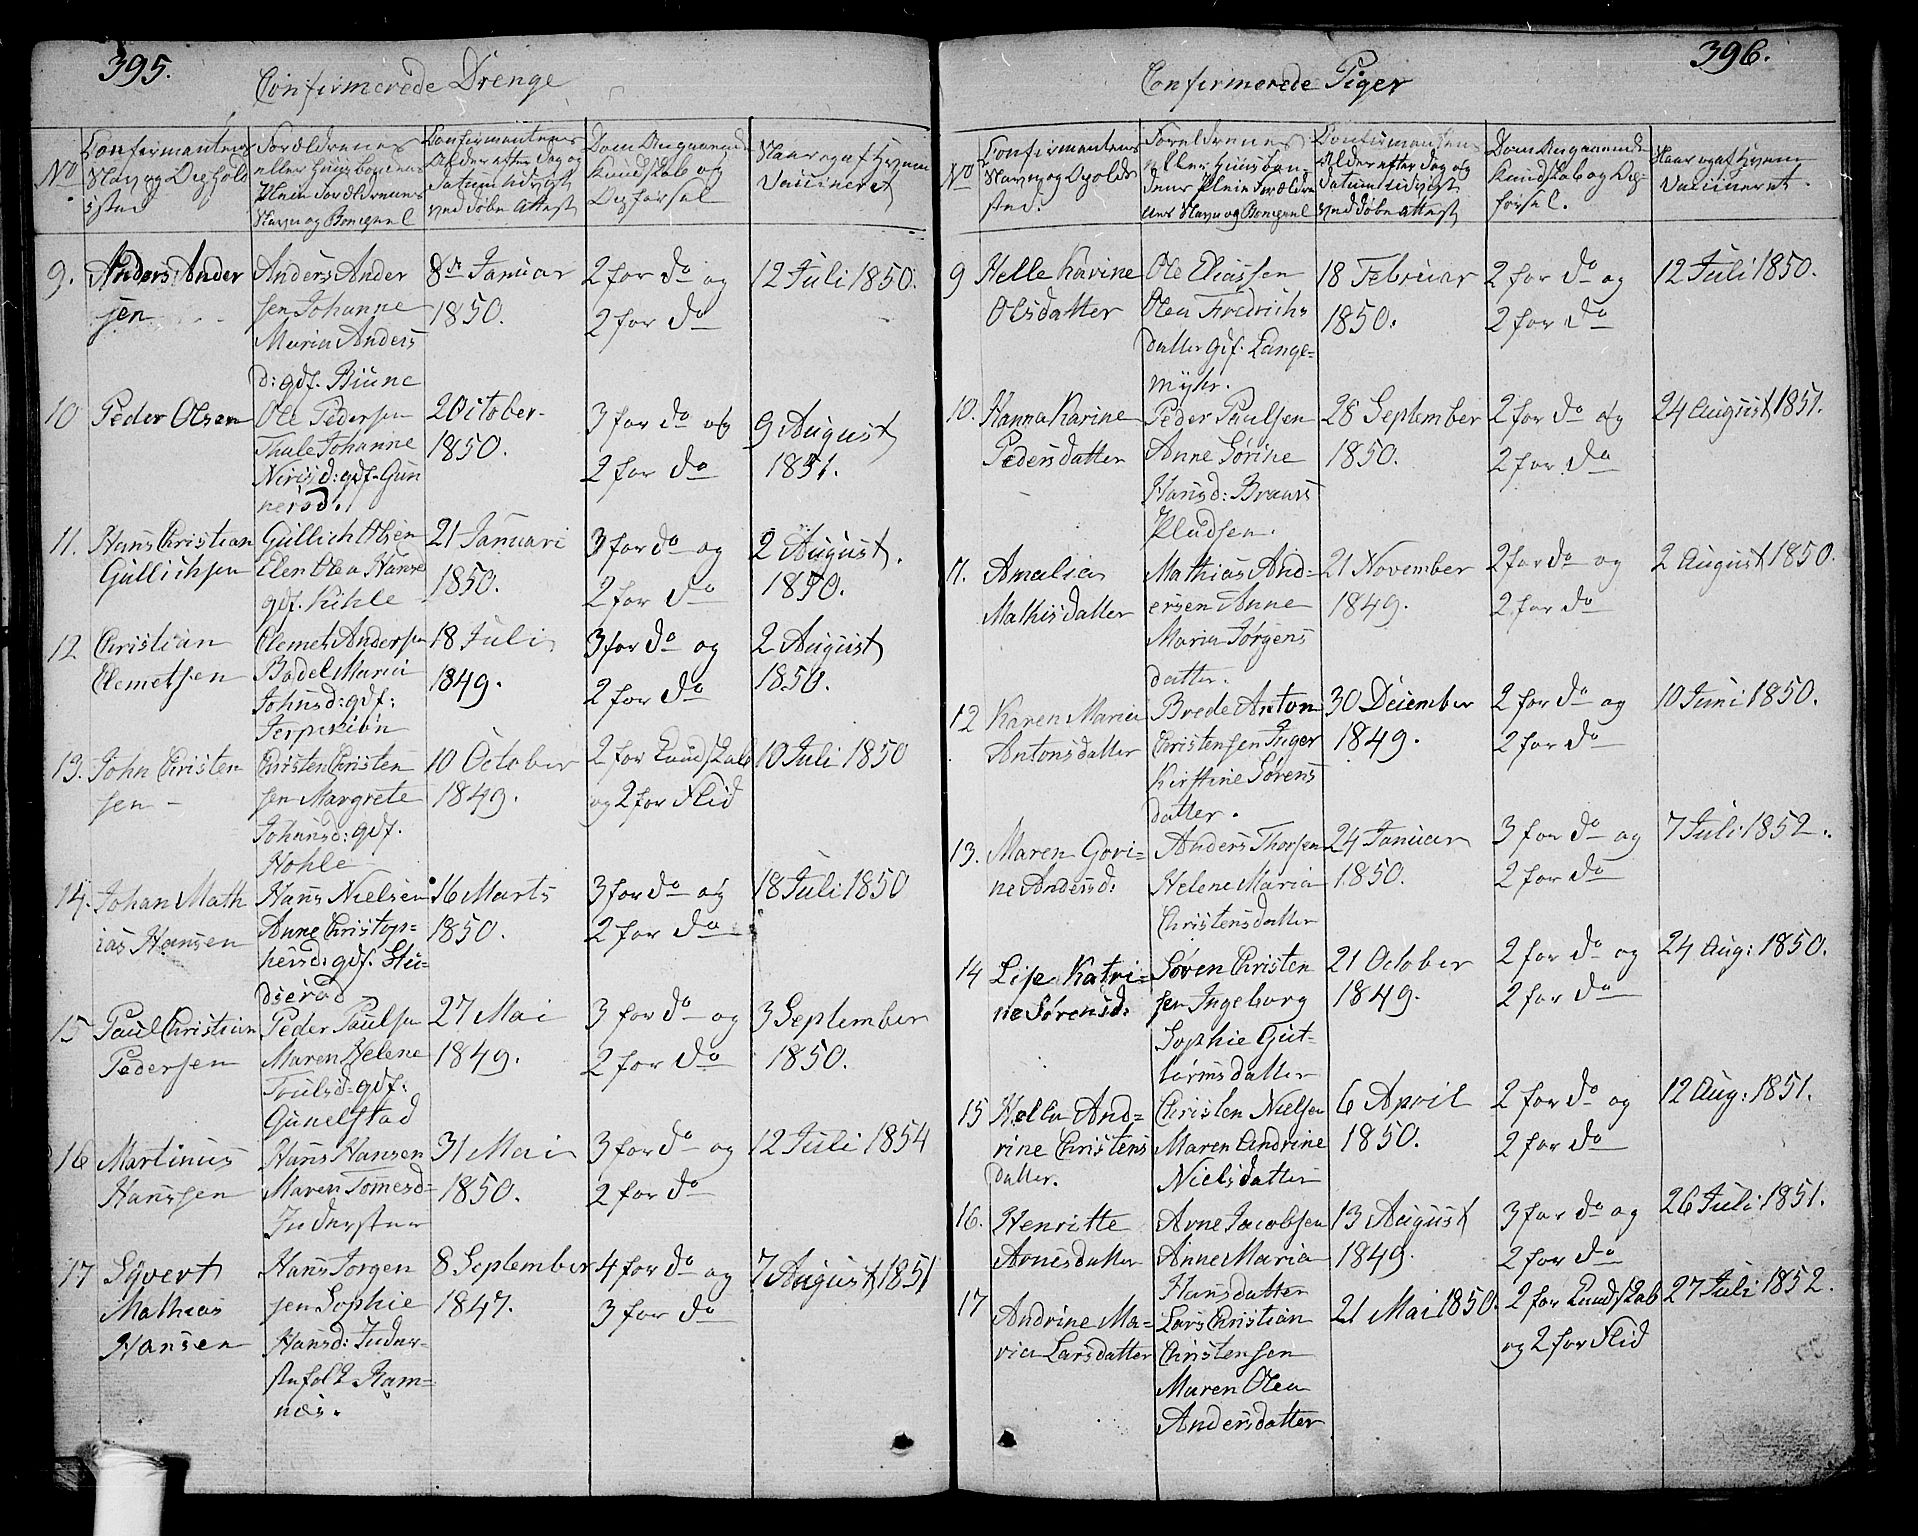 395.
Confirmerede Drenge
No
Confirmantens
Navn og Ophold
sted
Forældrenes
eller Huusbondens
Pleie Forældrenes
Navn og Bongpæl
Confirmantens
Alder efter Dag og
Datum udvigt
ved Døbe Attest
Dom Angaaende
Kundskab og
Opførsel
Naar og af Hvem
Vaccineret
9. Anders Ander
sen
Anders Ander
sen Johanne
Maria Anders
d: gdf. Biune
8de Januar
1850.
2 for do og
2 for do
12 Juli 1850.
10 Peder Olsen
Ole Pedersen
Thale Johanne
Nirisd: gdf. Gun
nersd.
2 October
1850.
3 for do og
2 for do
9 August
1851.
11. Hans Christian
Gullichsen
Gullich Olsen
Elen Olea Hansd
gdf. Kihle
21 Januari
1850.
3 for do og
2 for do
2 August.
1850.
12 Christian
Clemetsen
Clemet Andersen
Bodel Maria
Johnsd: gdf:
Ierpekiøn
18 Juli
1849.
3 for do og
2 for do
2 August
1850.
13. John Christen
sen
Christen Christen
sen Margrete
Johansd: gdf.
Hohle
10 October
1849.
2 for Kundskab
og 2 for Flid
10 Juli 1850
14. Johan Math
ias Hansen
Hans Nielsen
Anne Christop=
hersd: gdf. Stu=
dserød
16 Marts
1850.
3 for do og
2 for do
18 Juli 1850
15 Paul Christian
Pedersen
Peder Paulsen
Maren Helene
Poulsd: gdf:
Gunelstad
27 Mai
1849.
3 for do og
2 for do
3 September
1850.
16 Martinus
Hanssen
Hans Hansen
Maren Tomesd=
Inderstuu
31 Mai
1850.
3 for do og
2 for do
12 Juli 1854
17 Syvert
Mathias
Hansen
Hans Jorgen
sen Sophie
Hansd: Inder=
stufolk Ram=
næs.
8 September
1847.
4 for do og
3 for do
7 August 1851
396.
Confirmerede Piger
No
Confirmantens
Navn og Opolds
sted.
Foreldrenes
Eller Huusbon
dens Pleie Foreldre
nes Navn og Bongpæl
Confirmantens
Alder efter Dag og
Datum udvigt
ved Døbe Attest
Dom Angaaende
Kundskab og Op=
førsel.
Naar og af Hvem
Vaccineret.
9 Helle Karine
Olsdatter
Ole Eliassen
Olea Fredrichs
datter gdf. Lange=
myhr.
18 Februar
1850.
2 for do og
2 for do
12 Juli 1850.
10. Hanna Karine
Pedersdatter
Peder Paulsen
Anne Sørine
Hansd: Braaes
Pludsen.
28 September
1850.
2 for do og
2 for do
24 August 1851.
11. Amalia
Mathisdatter
Mathias And=
ersen Anne
Maria Jørgens
datter.
21 November
1849.
2 for do og
2 for do
2 August 1850.
12 Karen Maria
Antonsdatter
Brede Anton
Christensen Inger
Kirstine Sørens
datter.
30 December
1849.
2 for do og
2 for do
10 Juni 1850.
13. Maren Govi=
ne Andersd:
Anders Thorsen
Helene Maria
Christensdatter
24 Januar
1850.
3 for do og
2 for do
7 Juli 1852.
14 Lise Katri=
ne Sørensd:
Søren Christen
sen Ingeborg
Sophie Gut=
tormsdatter
21 October
1849.
2 for do og
2 for do
24 Aug: 1850.
15 Hella And=
rine Christens
datter.
Christen Nielsen
Maren Andrine
Nielsdatter
6 April
1850.
2 for do og
2 for do
12 Aug: 1851.
16. Henritte
Arnesdatter
Arne Jacobsen
Anne Maria
Hansdatter
13 August
1849.
3 for do og
2 for do
26 Juli 1851.
17 Andrine Ma=
ria Larsdatter
Lars Christian
Christensen
Maren Olea
Andersdatter
21 Mai 1850.
2 for Kundskab
og 2 for Flid
27 Juli 1852.